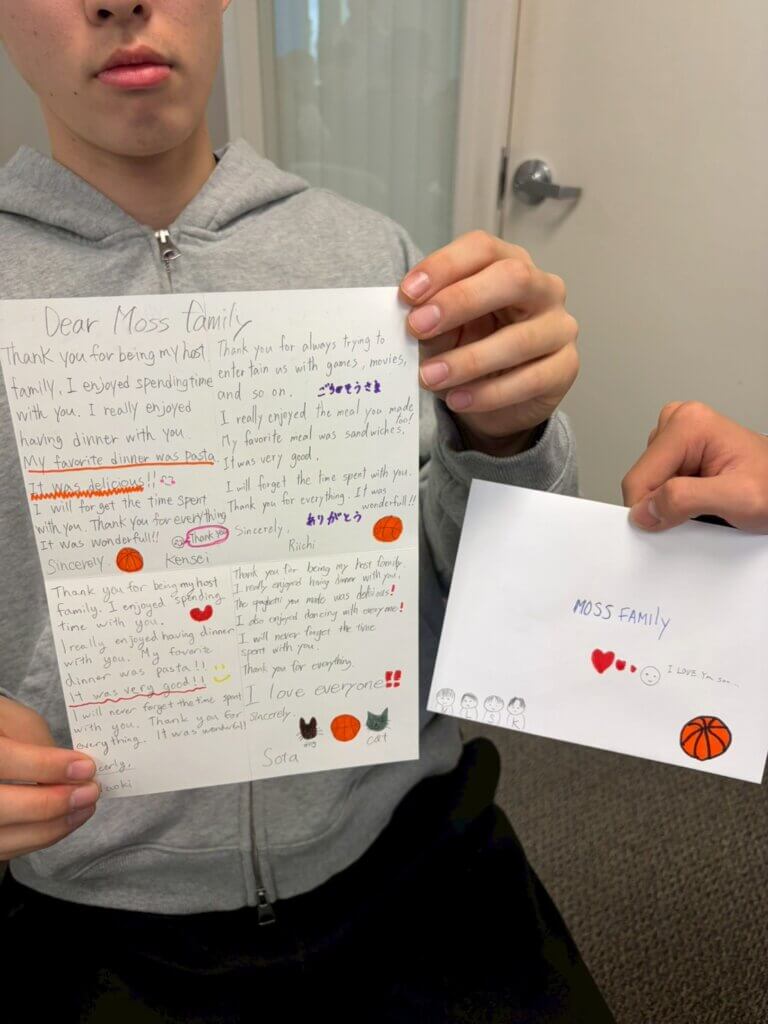 Dear Moss family
Thank you for being my host
family. I enjoyed spending time
with you. I really enjoyed
having dinner with you.
My favorite dinner was pasta.
It was delicious!!
I will forget the time spent
with you. Thank you for everything
It was wonderful!!
Thank you
Sincerely.
Kensei
Thank you for always trying to
entertain us with games, movies,
and so on. ごちそうさま
I really enjoyed the meal you made
too!
My favorite meal was sandwiches.
It was very good.
I will forget the time spent with you.
Thank you for everything. It was
wonderful!!
ありがとう
Sincerely.
Riichi
Thank you for being my host
family. I enjoyed spending
time with you.
I really enjoyed having dinner
with you. My favorite
dinner was pasta!!
It was very good!!
I will never forget the time spent
with you. Thank you for
everything. It was wonderful!
Thank you for being my host family.
I really enjoyed having dinner with you.
The spaghetti you made was delicious!
I also enjoyed dancing with everyone!
I will never forget the time
spent with you.
Thank you for everything.
I love everyone!!
Sincerely
cat
Sota
MOSS FAMILY
I LOVE You soo...
L S K